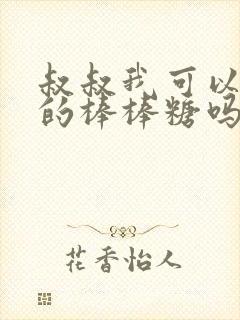 叔叔我可以
的棒棒糖吗
花香怡人